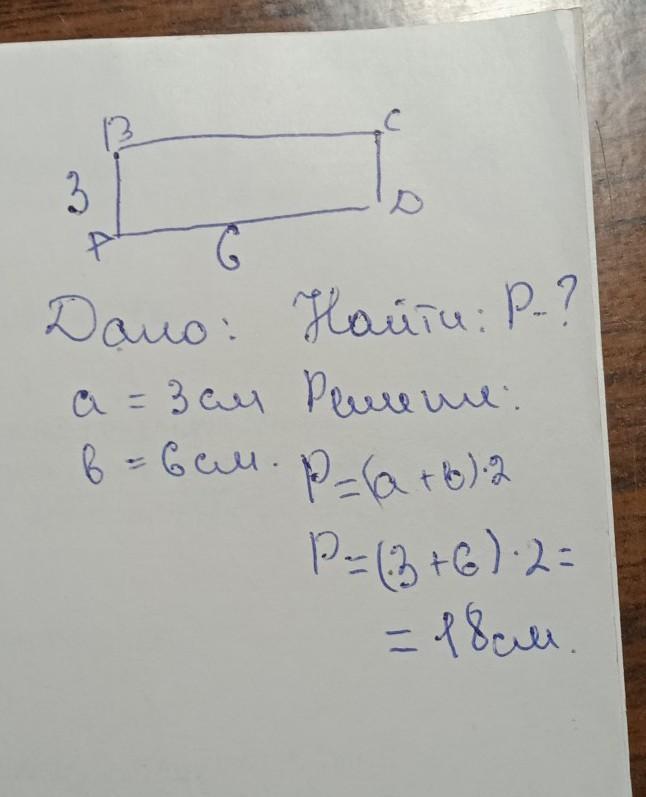 B C
3
A D
6
Дано: Найти: P-?
a = 3 см Решени:
в = 6 см.
P=(a+в)·2
P=(3+6)·2=
= 18 см.